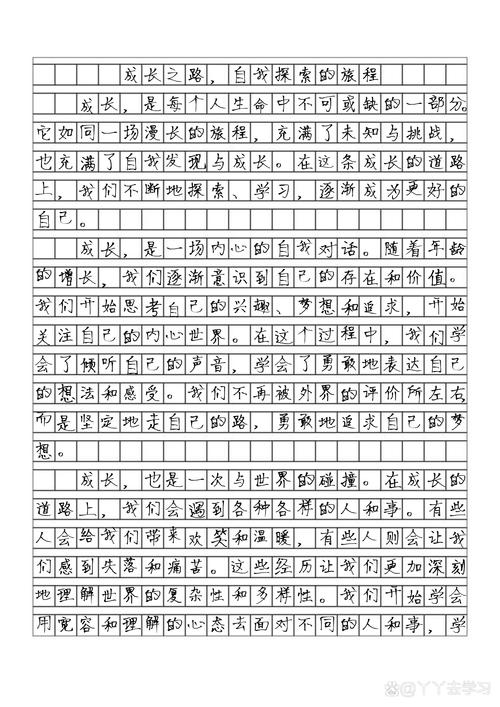 成长之路，自我探索的旅程
成长，是每个人生命中不可或缺的一部分。
它如同一场漫长的旅程，充满了未知与挑战，
也充满了自我发现与成长。在这条成长的道路
上，我们不断地探索、学习，逐渐成为更好的
自己。
成长，是一场内心的自我对话。随着年龄
的增长，我们逐渐意识到自己的存在和价值。
我们开始思考自己的兴趣、梦想和追求，开始
关注自己的内心世界。在这个过程中，我们学
会了倾听自己的声音，学会了勇敢地表达自己
的想法和感受。我们不再被外界的评价所左右，
而是坚定地走自己的路，勇敢地追求自己的梦
想。
成长，也是一次与世界的碰撞。在成长的
道路上，我们会遇到各种各样的人和事。有些
人会给我们带来欢笑和温暖，有些人则会让我
们感到失落和痛苦。这些经历让我们更加深刻
地理解世界的复杂性和多样性。我们开始学会
用宽容和理解的心态去面对不同的人和事，学
@丫丫去学习